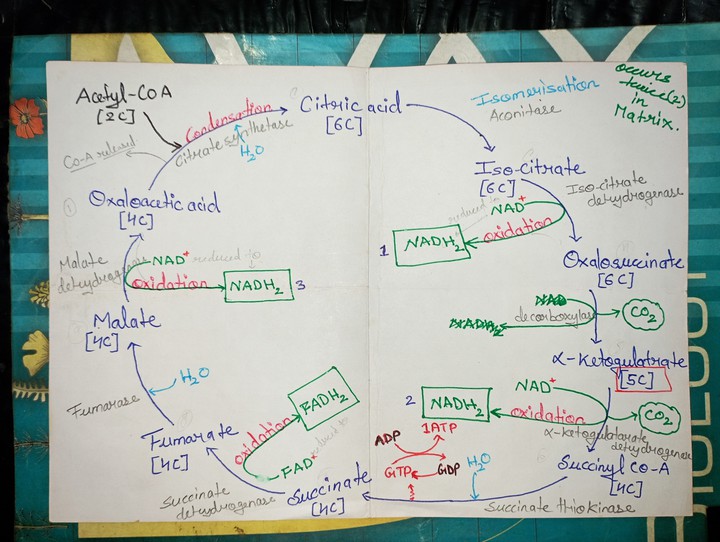 occurs
twice(2)
in
Matrix.
Acetyl-CoA
[2C]
Condensation
Citrate synthetase
H₂O
Co-A released
Citric acid
[6C]
Isomerisation
Aconitase
Iso-citrate
[6C]
Iso-citrate
dehydrogenase
reduced to
NAD⁺
oxidation
1
NADH₂
Oxalosuccinate
[6C]
decarboxylase
CO₂
α-Ketogulatrate
[5C]
NAD⁺
2
NADH₂
oxidation
CO₂
α-Ketogulatarate
dehydrogenase
Succinyl Co-A
[4C]
ADP
1ATP
GTP
GDP
H₂O
Succinate thiokinase
Succinate
[4C]
Succinate
dehydrogenase
oxidation
FADH₂
FAD⁺
reduced to
Fumarate
[4C]
Fumarase
H₂O
Malate
[4C]
Malate
dehydrogenase
NAD⁺
reduced to
oxidation
NADH₂
3
Oxaloacetic acid
[4C]